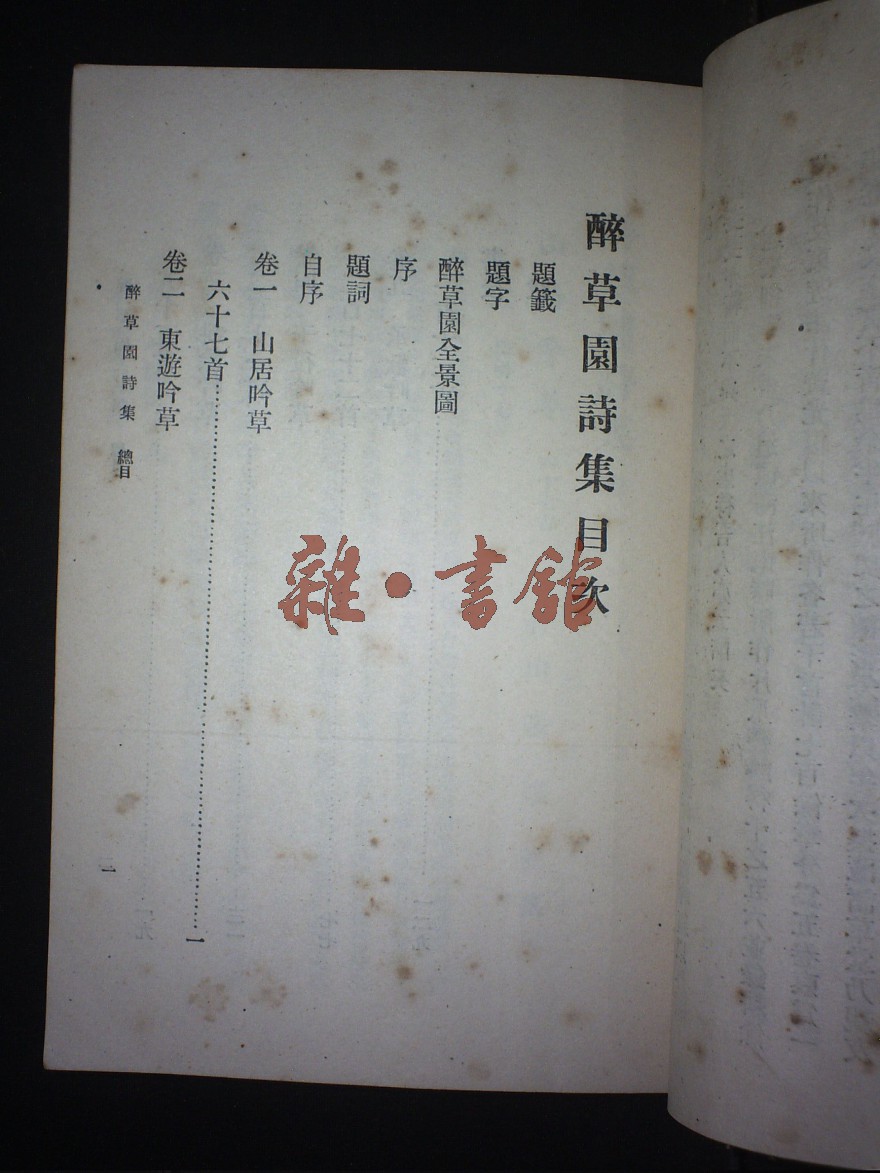 醉草園詩集目次
題籤
題字
醉草園全景圖
序
題詞
自序
卷一　山居吟草
六十七首……一
卷二　東遊吟草
醉草園詩集　總目
一
雜·書館